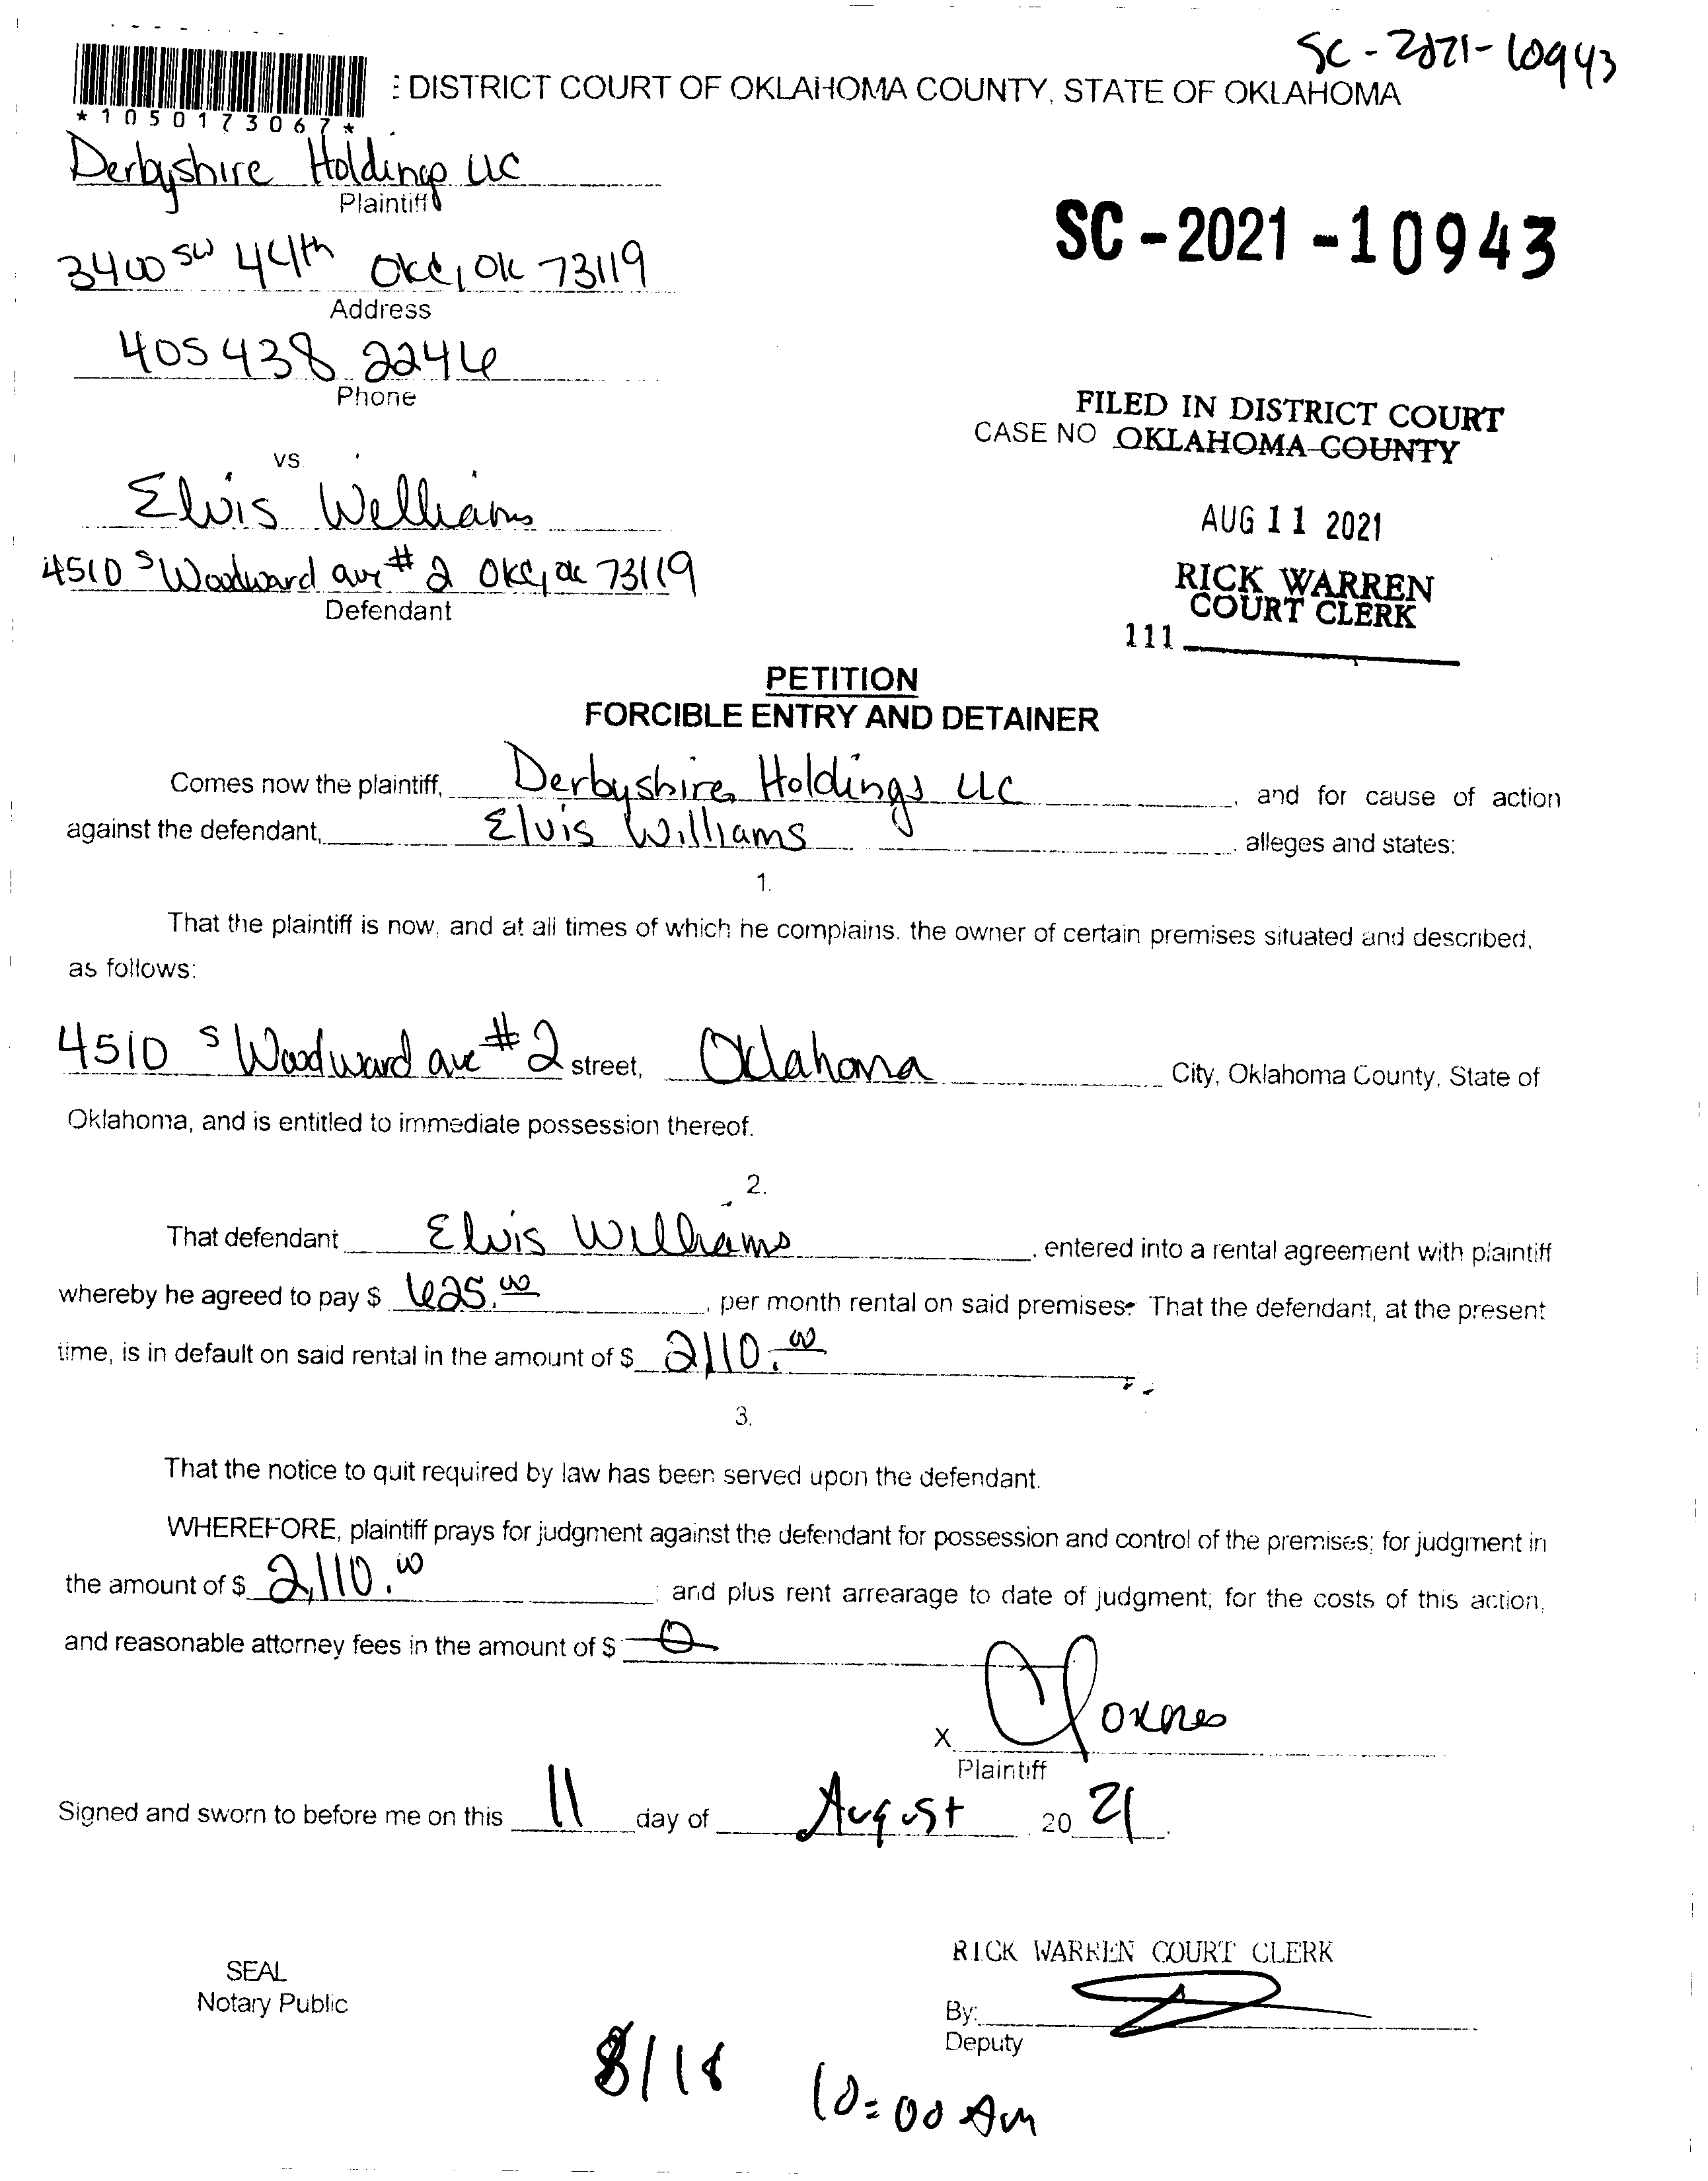 SC-2021-10943
: DISTRICT COURT OF OKLAHOMA COUNTY, STATE OF OKLAHOMA
*1050173067*
Derbyshire Holdings LLC
Plaintiff
SC-2021-10943
3400 SW 44th OKC, OK 73119
Address
405 438 2246
Phone
FILED IN DISTRICT COURT
CASE NO OKLAHOMA COUNTY
vs.
Elvis Williams
AUG 11 2021
4510 S Woodward ave # 2 OKC, OK 73119
Defendant
RICK WARREN
COURT CLERK
111
PETITION
FORCIBLE ENTRY AND DETAINER
Comes now the plaintiff, Derbyshire Holdings LLC, and for cause of action
against the defendant, Elvis Williams alleges and states:
1.
That the plaintiff is now, and at all times of which he complains, the owner of certain premises situated and described,
as follows:
4510 S Woodward ave # 2 street, Oklahoma City, Oklahoma County, State of
Oklahoma, and is entitled to immediate possession thereof.
2.
That defendant Elvis Williams, entered into a rental agreement with plaintiff
whereby he agreed to pay $ 625.00, per month rental on said premises. That the defendant, at the present
time, is in default on said rental in the amount of $ 2110.00
3.
That the notice to quit required by law has been served upon the defendant.
WHEREFORE, plaintiff prays for judgment against the defendant for possession and control of the premises; for judgment in
the amount of $ 2,110.00; and plus rent arrearage to date of judgment; for the costs of this action,
and reasonable attorney fees in the amount of $ 0
X
Plaintiff
Signed and sworn to before me on this 11 day of August 2021.
RICK WARREN COURT CLERK
SEAL
Notary Public
By:
Deputy
8/18 10:00 AM